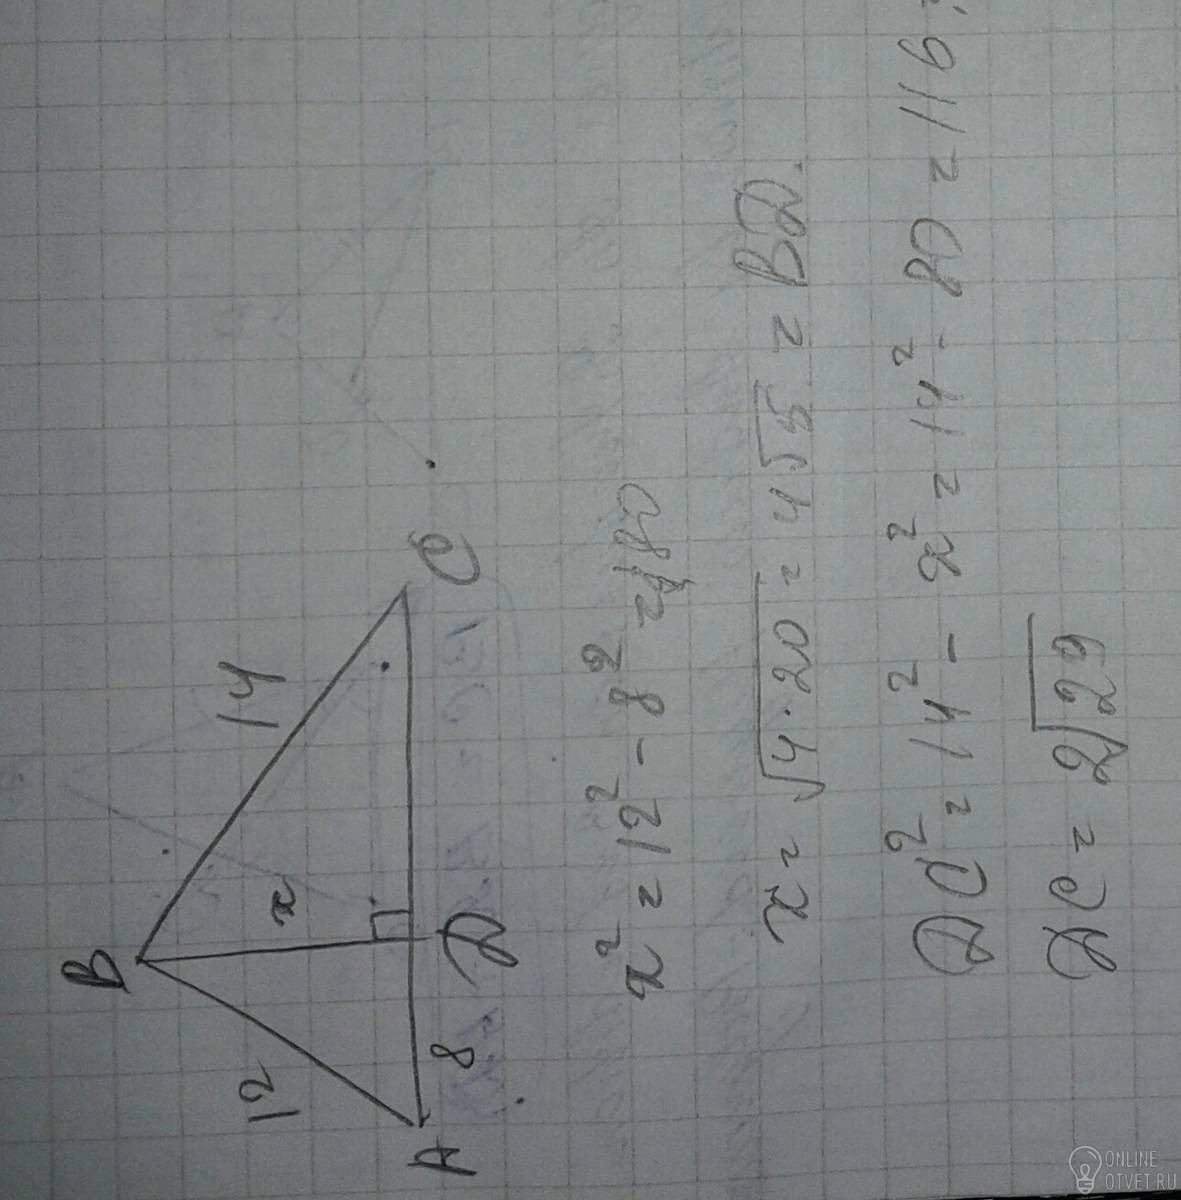 B
12
14
x
A
8
D
C
x² = 12² - 8² = 80
x = √4·20 = 4√5 = BD.
DC² = 14² - x² = 14² - 80 = 116;
DC = 2√29
ONLINE
OTVET.RU